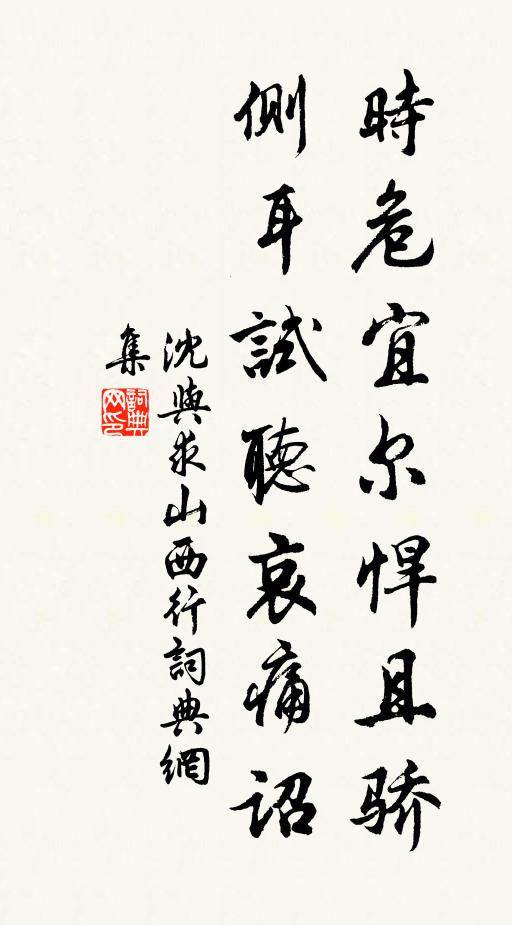 時危宜尔悍且骄
側耳試聽哀痛詔
沈與求山西行詞典網
集
詞典网印